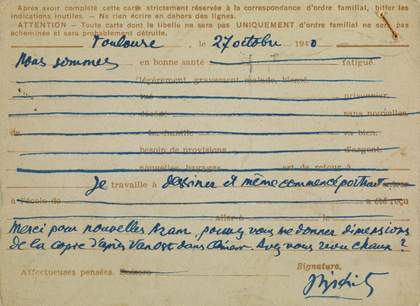 Après avoir complété cette carte strictement réservée à la correspondance d'ordre familial, biffer les
indications inutiles. - Ne rien écrire en dehors des lignes.
ATTENTION - Toute carte dont le libellé ne sera pas UNIQUEMENT d'ordre familial ne sera pas
acheminée et sera probablement détruite.
Toulouse, le 27 octobre 1940
Nous sommes en bonne santé fatigué.
légèrement, gravement malade, blessé
tué prisonnier.
décédé sans nouvelles
de La famille va bien.
besoin de provisions d'argent.
nouvelles, bagages est de retour à
Je travaille à dessiner et même commencé portrait
à l'école de a été reçu
aller à
Merci pour nouvelles pouvez vous me donner dimensions
de la copie d'après dans Avez vous
Affectueuses pensées.
Signature.